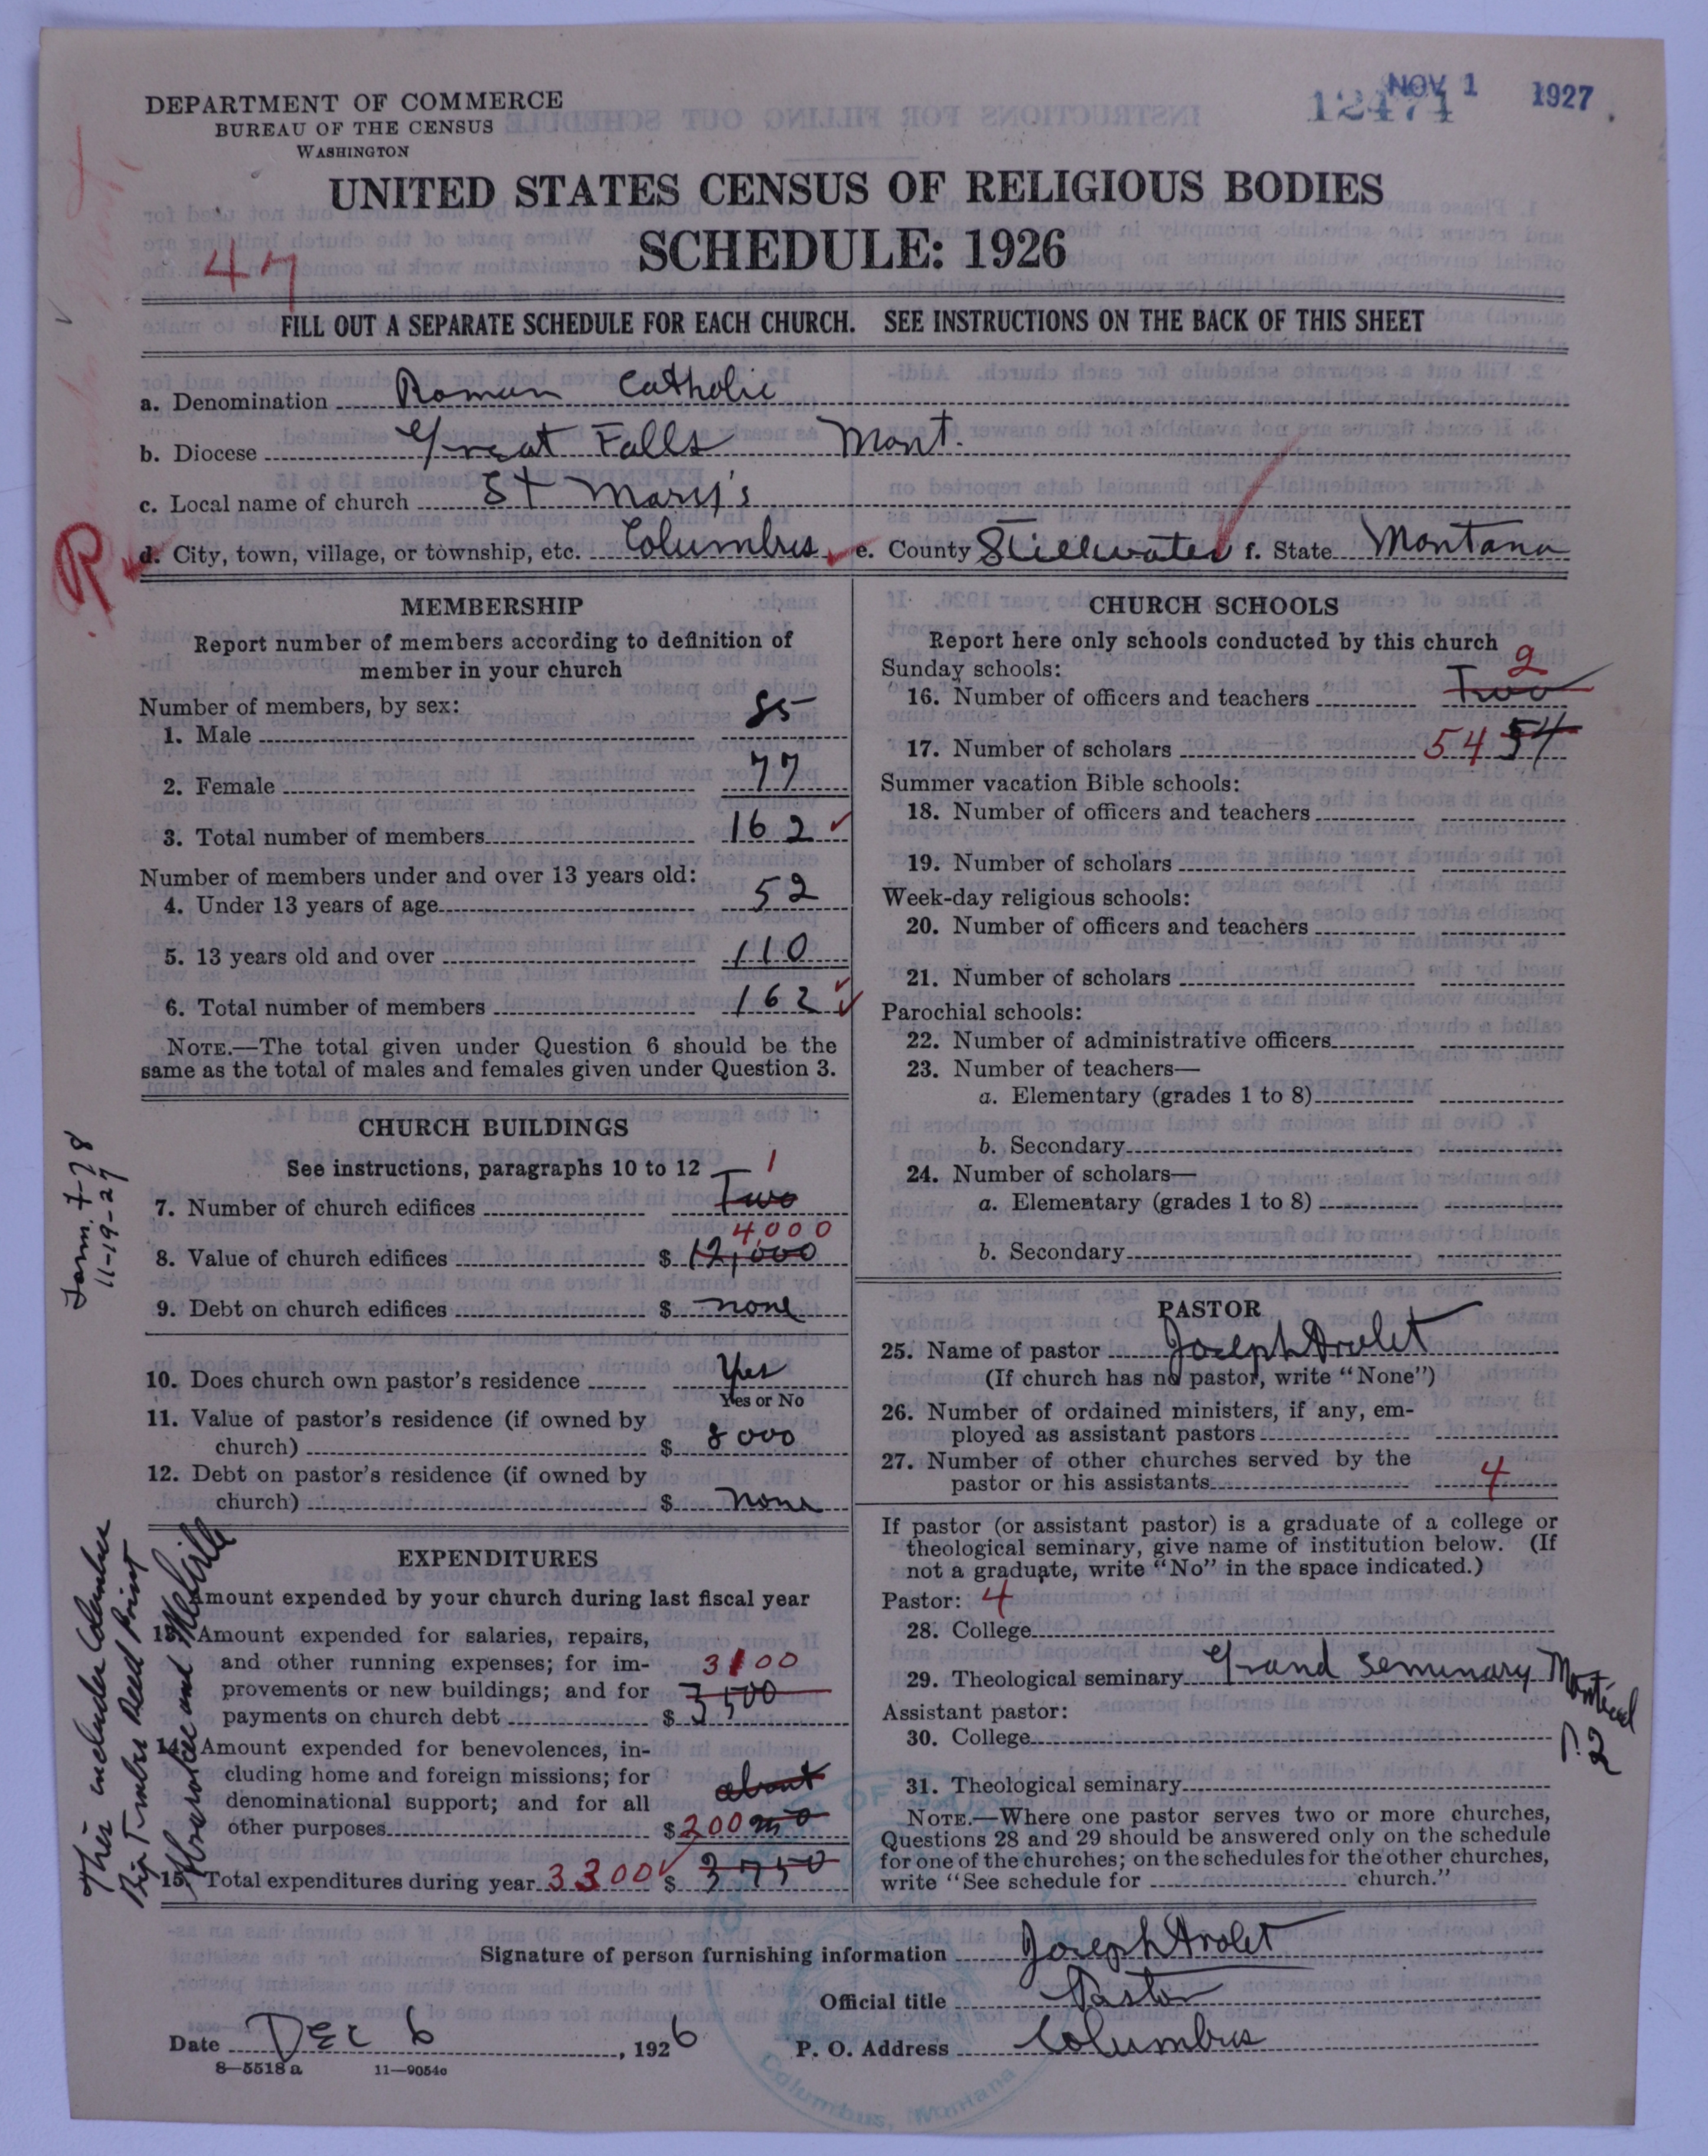 DEPARTMENT OF COMMERCE
BUREAU OF THE CENSUS
WASHINGTON
NOV 1 1927
12474
UNITED STATES CENSUS OF RELIGIOUS BODIES
SCHEDULE: 1926
47
FILL OUT A SEPARATE SCHEDULE FOR EACH CHURCH. SEE INSTRUCTIONS ON THE BACK OF THIS SHEET
a. Denomination Roman Catholic
b. Diocese Great Falls Mont.
c. Local name of church St Mary's
R
d. City, town, village, or township, etc. Columbus e. County Stillwater f. State Montana
MEMBERSHIP
Report number of members according to definition of
member in your church
Number of members, by sex:
1. Male 85
2. Female 77
3. Total number of members 162
Number of members under and over 13 years old:
4. Under 13 years of age 52
5. 13 years old and over 110
6. Total number of members 162
NOTE.—The total given under Question 6 should be the
same as the total of males and females given under Question 3.
CHURCH BUILDINGS
See instructions, paragraphs 10 to 12 1
7. Number of church edifices Two
4,000
8. Value of church edifices $ 12,000
9. Debt on church edifices $ none
10. Does church own pastor's residence Yes
Yes or No
11. Value of pastor's residence (if owned by
church) $ 8000
12. Debt on pastor's residence (if owned by
church) $ none
Form 7-78
11-19-27
EXPENDITURES
Amount expended by your church during last fiscal year
13. Amount expended for salaries, repairs,
and other running expenses; for im- 3100
provements or new buildings; and for
payments on church debt $ 3500
14. Amount expended for benevolences, in-
cluding home and foreign missions; for about
denominational support; and for all
other purposes $ 200 250
15. Total expenditures during year 3300 $ 3750
This includes Columbus
Big Timber Reed Point
Absarokee and Melville
CHURCH SCHOOLS
Report here only schools conducted by this church
Sunday schools: 2
16. Number of officers and teachers Two
17. Number of scholars 54 54
Summer vacation Bible schools:
18. Number of officers and teachers
19. Number of scholars
Week-day religious schools:
20. Number of officers and teachers
21. Number of scholars
Parochial schools:
22. Number of administrative officers
23. Number of teachers—
a. Elementary (grades 1 to 8)
b. Secondary
24. Number of scholars—
a. Elementary (grades 1 to 8)
b. Secondary
PASTOR
25. Name of pastor Joseph Arolet
(If church has no pastor, write "None")
26. Number of ordained ministers, if any, em-
ployed as assistant pastors
27. Number of other churches served by the
pastor or his assistants 4
If pastor (or assistant pastor) is a graduate of a college or
theological seminary, give name of institution below. (If
not a graduate, write "No" in the space indicated.)
Pastor: 4
28. College
29. Theological seminary Grand Seminary Montreal
P.Q
Assistant pastor:
30. College
31. Theological seminary
NOTE.—Where one pastor serves two or more churches,
Questions 28 and 29 should be answered only on the schedule
for one of the churches; on the schedules for the other churches,
write "See schedule for church."
Signature of person furnishing information Joseph Arolet
Official title Pastor
Date Dec 6, 1926 P. O. Address Columbus
8—5518a 11—9054c
Columbus, Montana